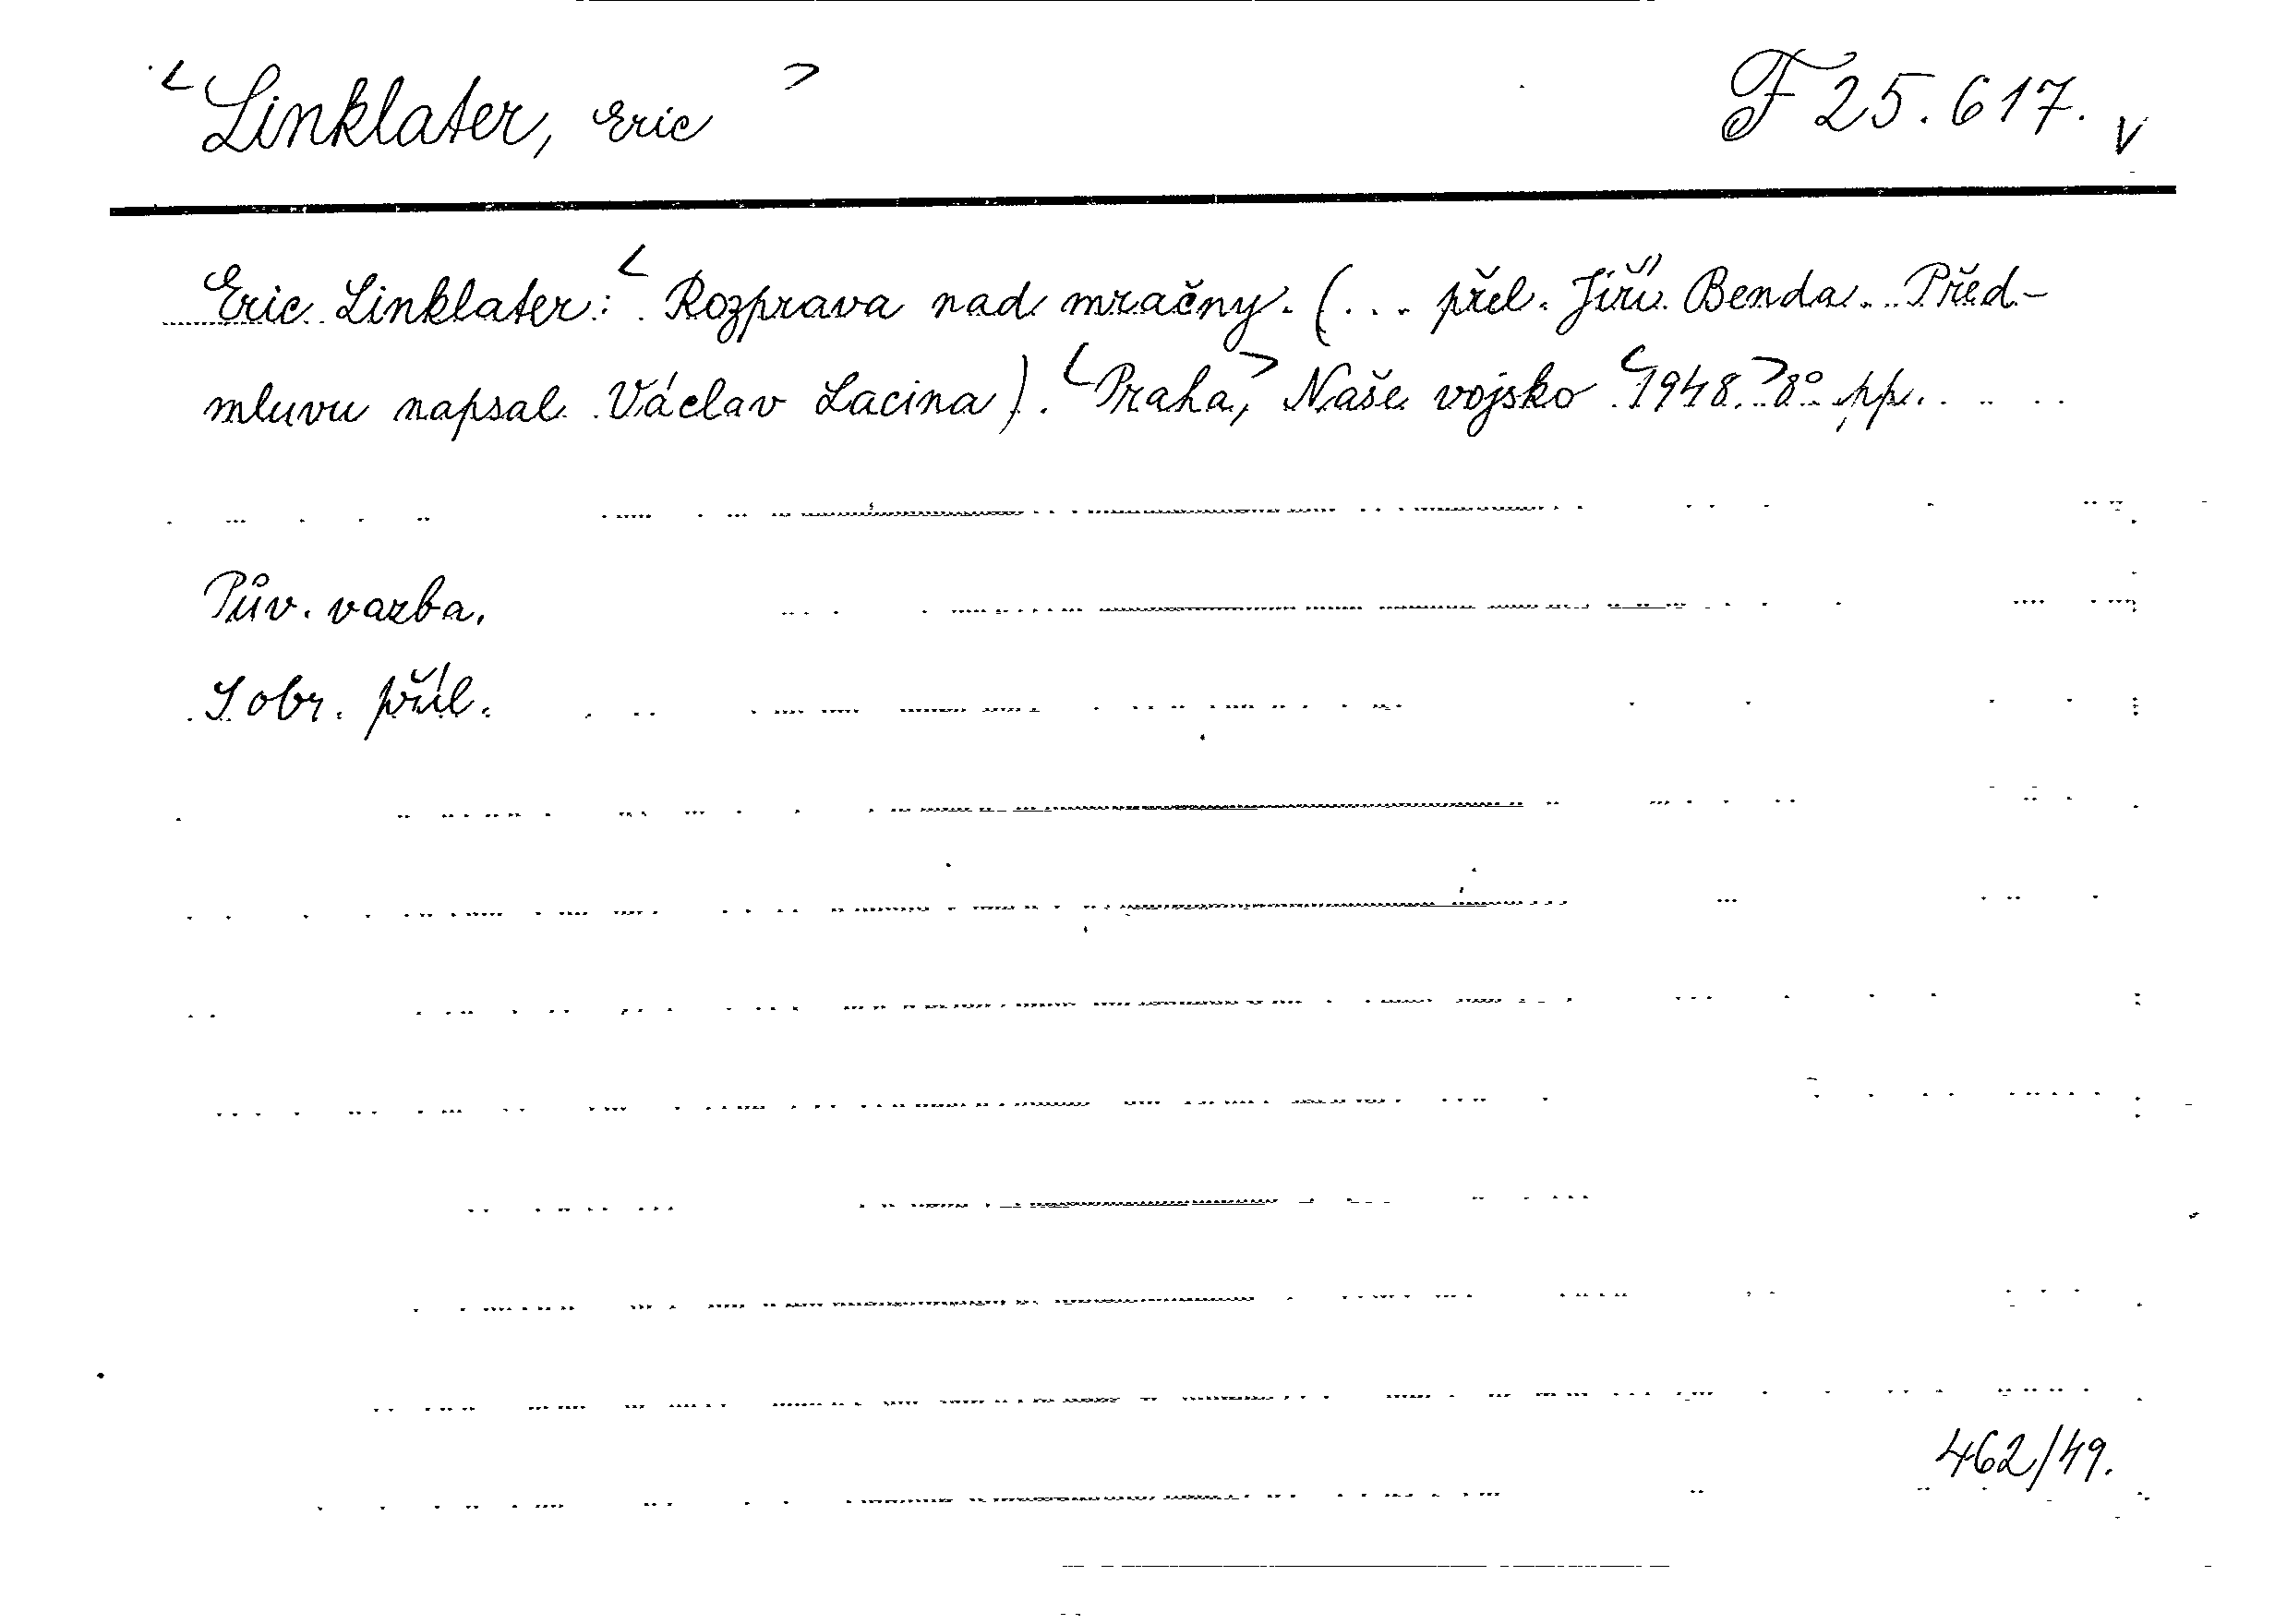 <Linklater, Eric> F 25.617. v
Eric Linklater: <Rozprava nad mračny. (... přel. Jiří Benda. Před-
mluvu napsal Václav Lacina). <Praha,> Naše vojsko <1948.> 8° pp.
Pův. vazba.
S obr. příl.
462/49.